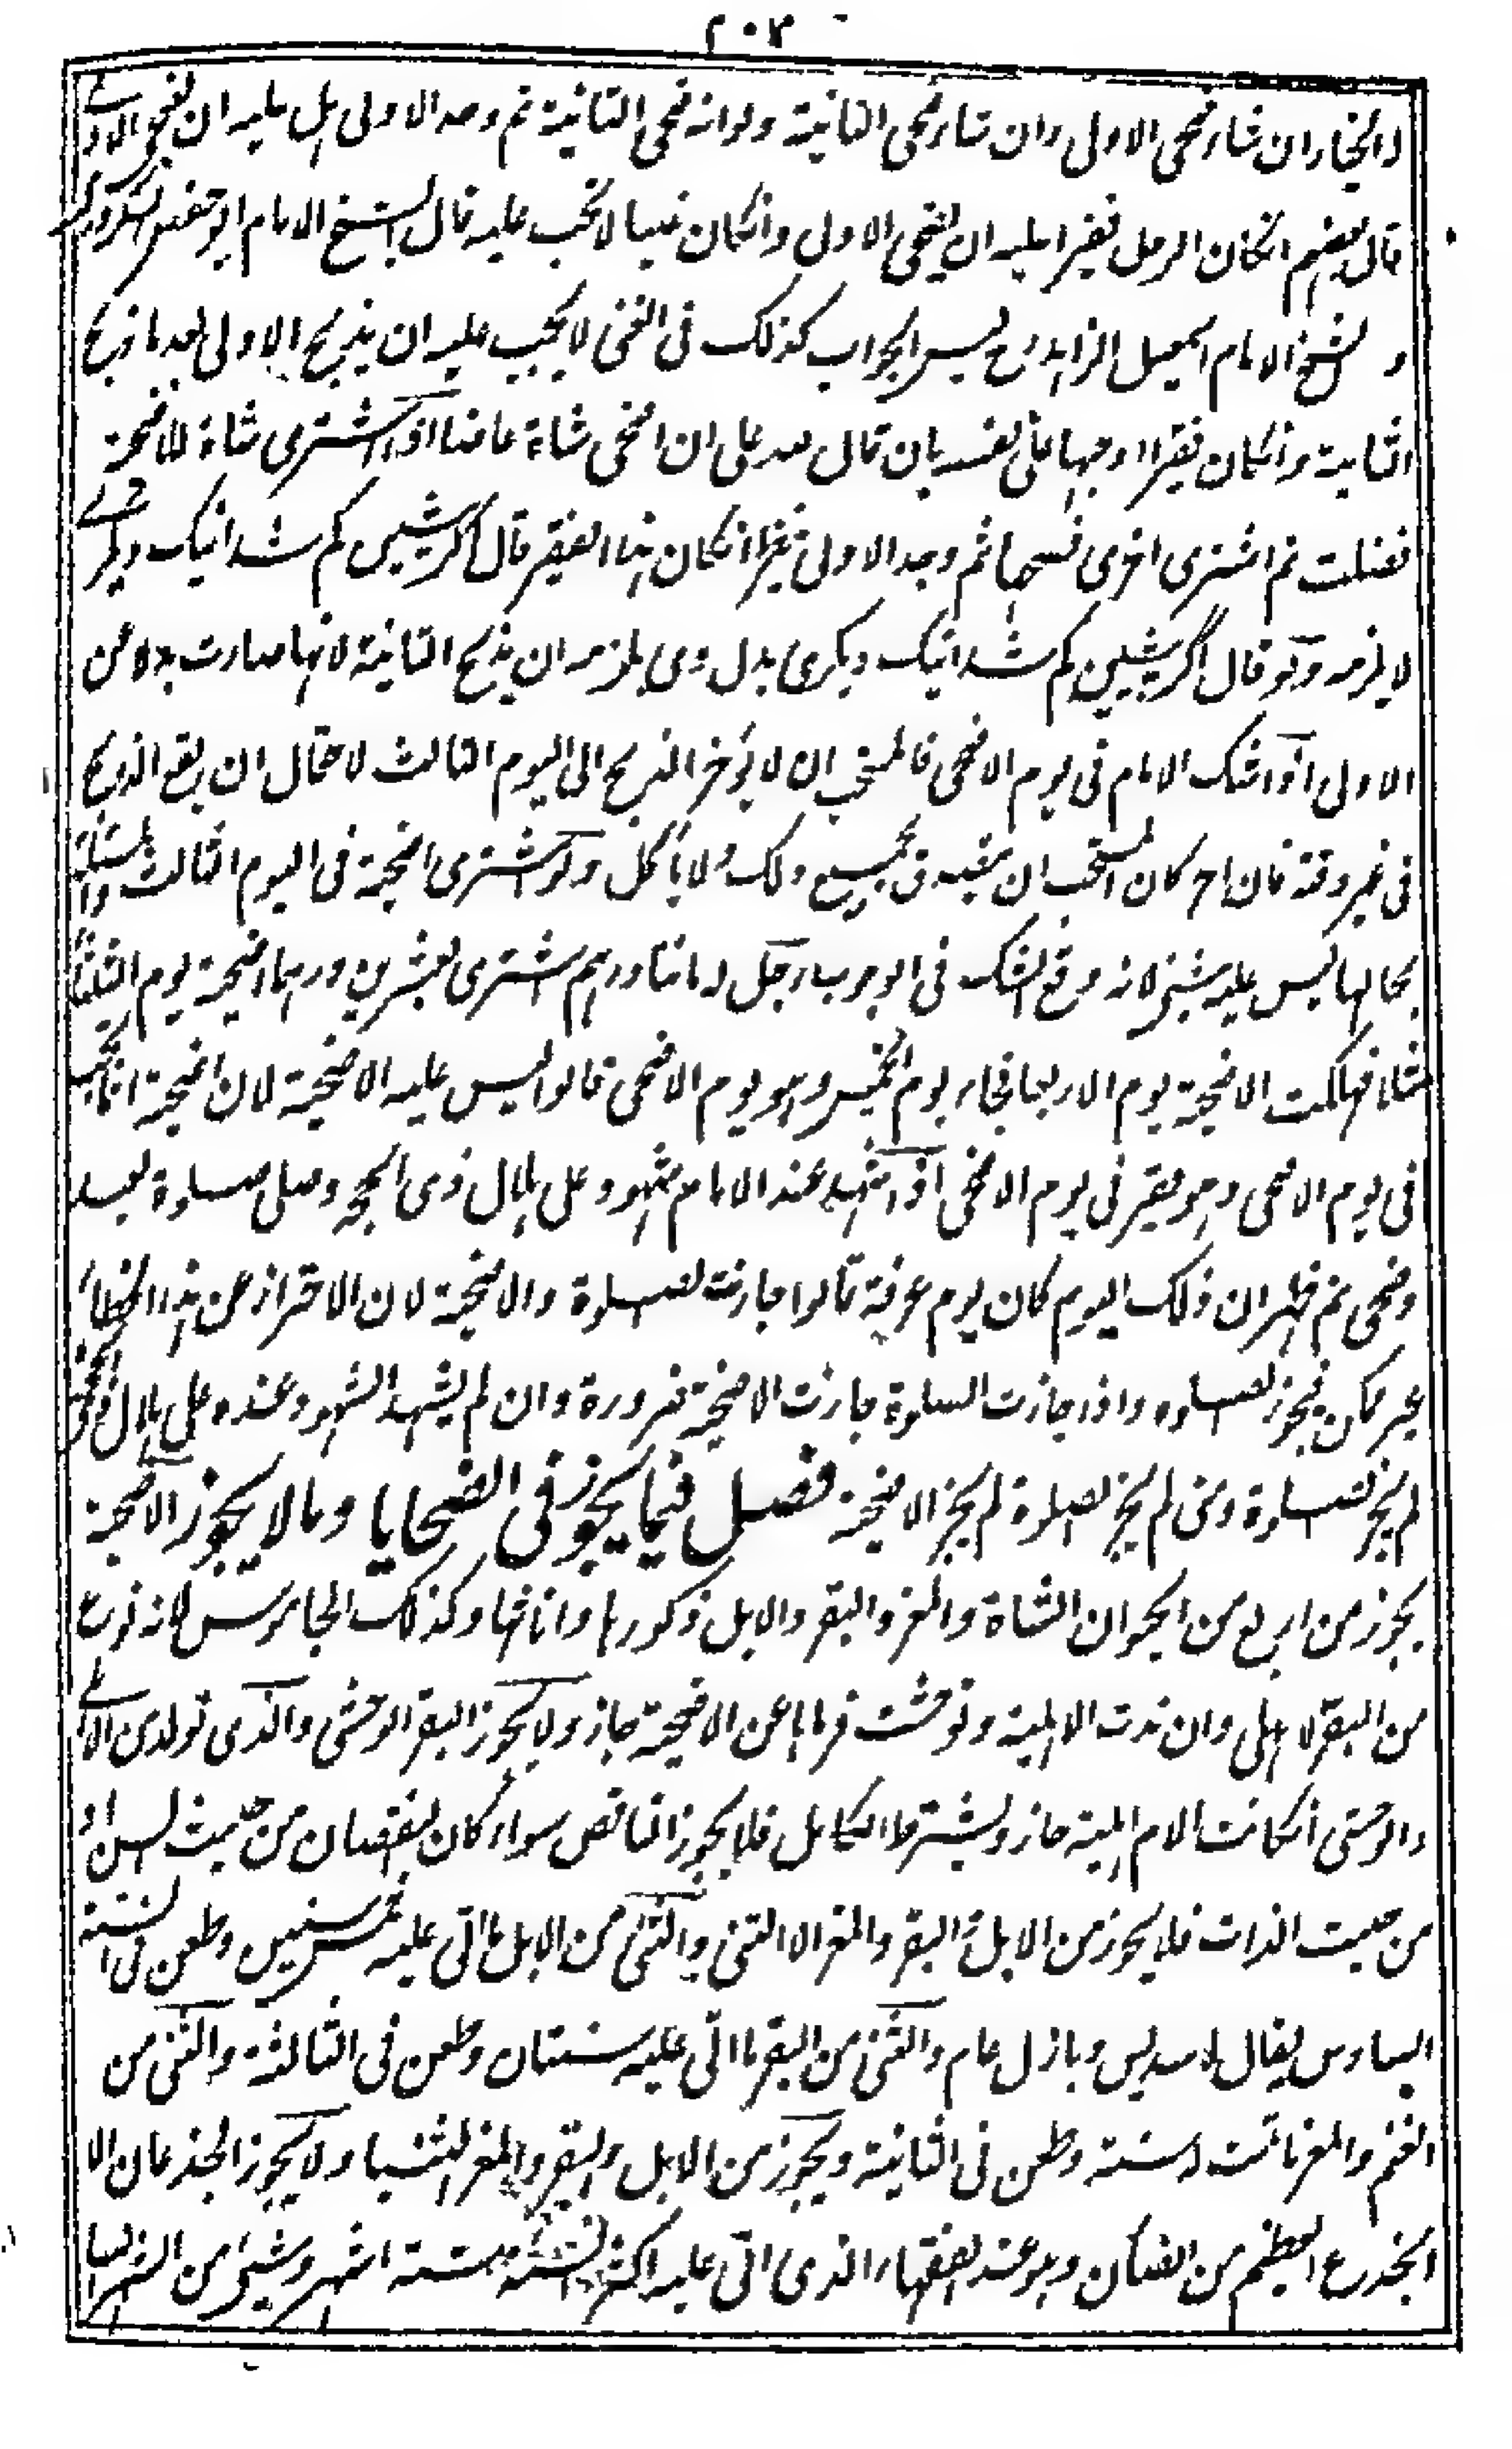 ٢٠٣
بالخيار ان شاء ضحى الاولى وان شاء ضحى الثانية ولو انه ضحى الثانية ثم وجد الاولى هل عليه ان يضحى الاولى
قال بعضهم انكان الرجل فقيرا عليه ان يضحى الاولى وانكان غنيا لا تجب عليه قال الشيخ الامام ابو حفص
والشيخ الامام اسمعيل الزاهد رح ليس الجواب كذلك فى الغنى لا يجب عليه ان يذبح الاولى بعد ما ذبح
الثانية وانكان فقيرا اوجبها على نفسه بان قال لله على ان اضحى شاة عامنا اذا اشترى شاة للاضحية
فضلت ثم اشترى اخرى فضحها ثم وجد الاولى ينظر انكان هذا الفقير قال اگر پيشين گم شد اينك ديگرے
لا يلزمه ولو قال اگر پيشين گم شد اينك ديگرى بدل وى يلزمه ان يذبح الثانية لانها صارت بدلا عن
الاولى اذا شك الامام فى يوم الاضحى فالمستحب ان لا يؤخر الذبح الى اليوم الثالث لاحتمال ان يقع الذبح
فى غير وقته فان اخر كان المستحب ان يتصدق بجميع ذلك ولا ياكل ولو اشترى اضحية فى اليوم الثالث والمسئلة
بحالها ليس عليه شئ لانه وقع الشك فى الوجوب رجل له مائتا درهم اشترى بعشرين درهما اضحية يوم الثلثاء
مثلا فهلكت الاضحية يوم الاربعا فجاء يوم الخميس وهو يوم الاضحى قالوا ليس عليه الاضحية لان اضحية انما تجب
فى يوم الاضحى وهو فقير فى يوم الاضحى اذا شهد عند الامام شهود على هلال ذى الحجه وصلى صلوة العيد
وضحى ثم ظهر ان ذلك اليوم كان يوم عرفة قالوا جازت الصلوة والاضحية لان الاحتراز عن هذا الخطاء
غير ممكن فيجوز الصلوة واذا جازت الصلوة جازت الاضحية ضرورة وان لم يشهد الشهود عنده على هلال ذى الحجة
لم يجز الصلوة ومتى لم يجز الصلوة لم يجز الاضحية فصل فيما يجوز فى الضحايا وما لا يجوز الاضحية
يجوز من اربع من الحيوان الشاة والمعز والبقر والابل ذكورها واناثها وكذلك الجاموس لانه نوع
من البقر الاهلى وان ندت الاهلية وتوحشت فرماها عن الاضحية جاز ولا يجوز البقر الوحشى والذى تولد من الاهلے
والوحشى انكانت الام اهلية جاز ويشترط الكامل فلا يجوز الناقص سواء كان النقصان من حيث السن او
من حيث الذات فلا يجوز من الابل والبقر والمعز الا الثنى والثنى من الابل ما اتى عليه خمس سنين وطعن فى السنة
السادس يقال له سديس وبازل عام والثنى من البقر ما اتى عليه سنتان وطعن فى الثالثة والثنى من
الغنم والمعز ما تمت له سنة وطعن فى الثانية ويجوز من الابل والبقر والمعز الثنيا ولا يجوز الجذعان الا
الجذع العظيم من الضأن وهو عند الفقهاء الذى اتى عليه اكثر السنة ستة اشهر وشيئ من الشهر السا